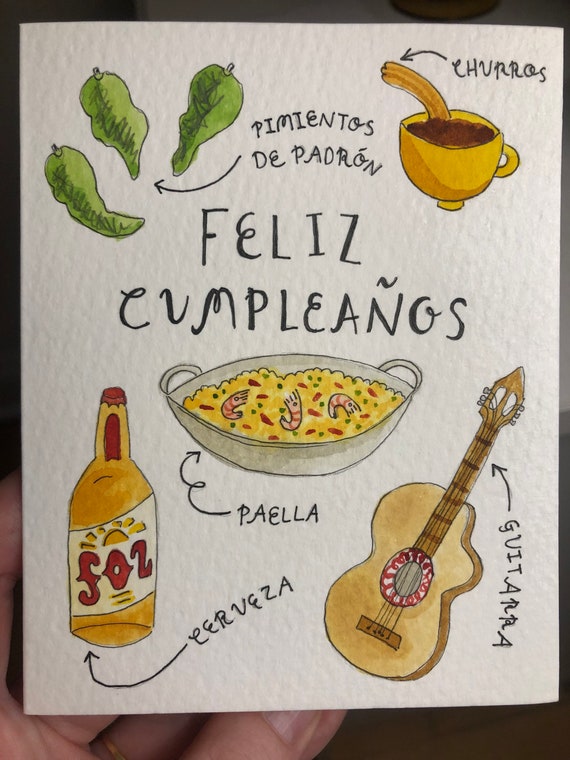 CHURROS
PIMIENTOS
DE PADRÓN
FELIZ
CUMPLEAÑOS
PAELLA
GUITARRA
SOL
CERVEZA